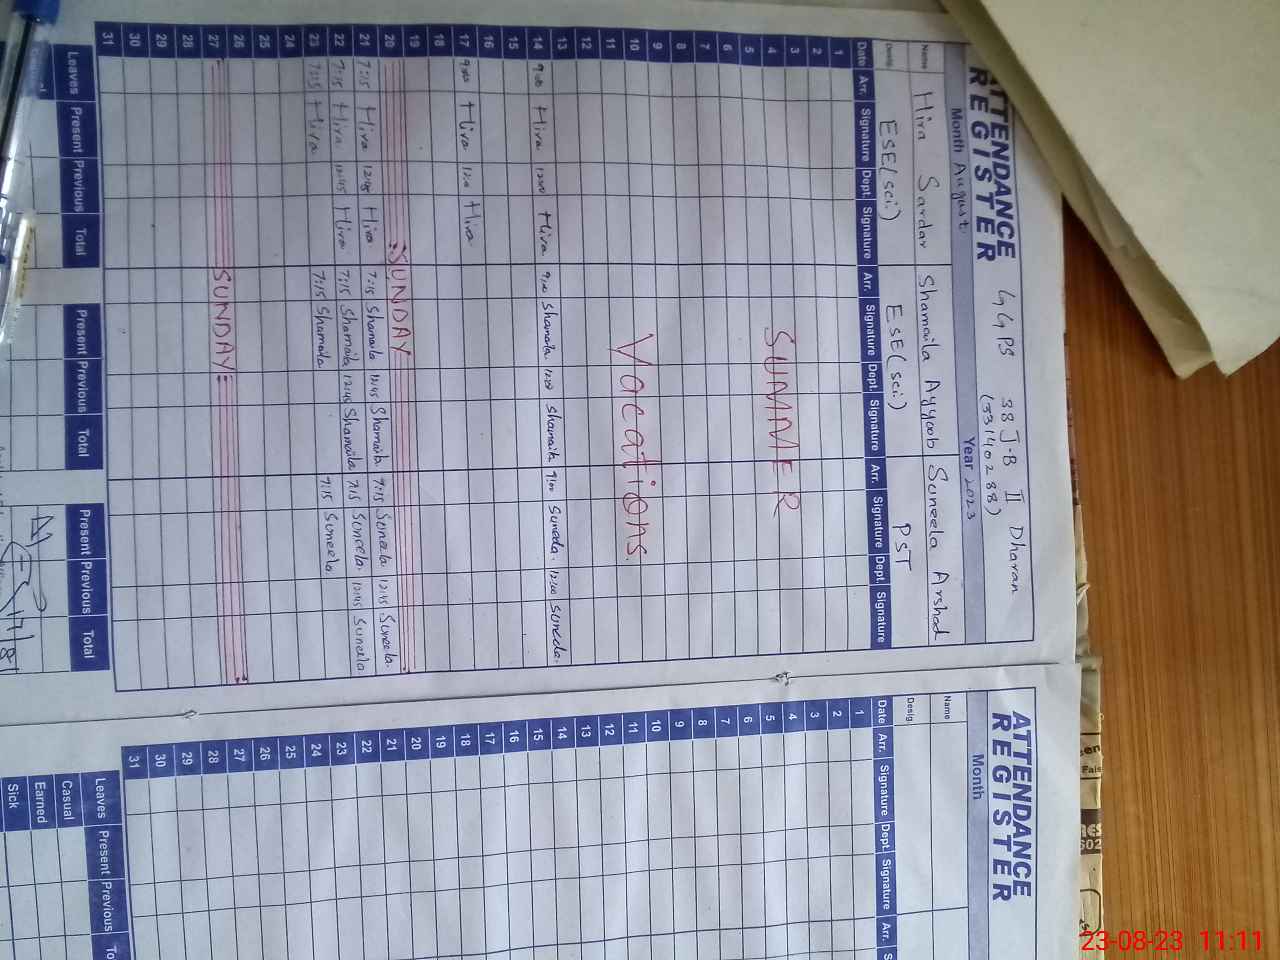 ATTENDANCE REGISTER
GGPS 38 J·B II Dharan
(33140288)
Month August Year 2023
Name Hira Sardar Shamaila Ayyoob Suneela Arshad
Desig ESE(sci.) ESE(sci.) PST
Date Arr. Signature Dept. Signature Arr. Signature Dept. Signature Arr. Signature Dept. Signature
1
2
3
4 SUMMER
5
6
7
8
9
10 Vacations
11
12
13
14 9:00 Hira 12:00 Hira 9:00 Shamaila 12:00 Shamaila 9:00 Suneela 12:00 Suneela
15
16
17 9:00 Hira 12:0 Hira
18
19
20 SUNDAY
21 7:15 Hira 12:45 Hira 7:15 Shamaila 12:45 Shamaila 7:15 Suneela 12:45 Suneela
22 7:15 Hira 12:45 Hira 7:15 Shamaila 12:45 Shamaila 7:15 Suneela 12:45 Suneela
23 7:15 Hira 7:15 Shamaila 7:15 Suneela
24
25
26
27 SUNDAY
28
29
30
31
Leaves Present Previous Total Present Previous Total Present Previous Total
Casual
17/8/
ATTENDANCE REGISTER
Month
Name
Desig.
Date Arr. Signature Dept. Signature Arr.
1
2
3
4
5
6
7
8
9
10
11
12
13
14
15
16
17
18
19
20
21
22
23
24
25
26
27
28
29
30
31
Leaves Present Previous
Casual
Earned
Sick
Fais
602
23-08-23 11:11